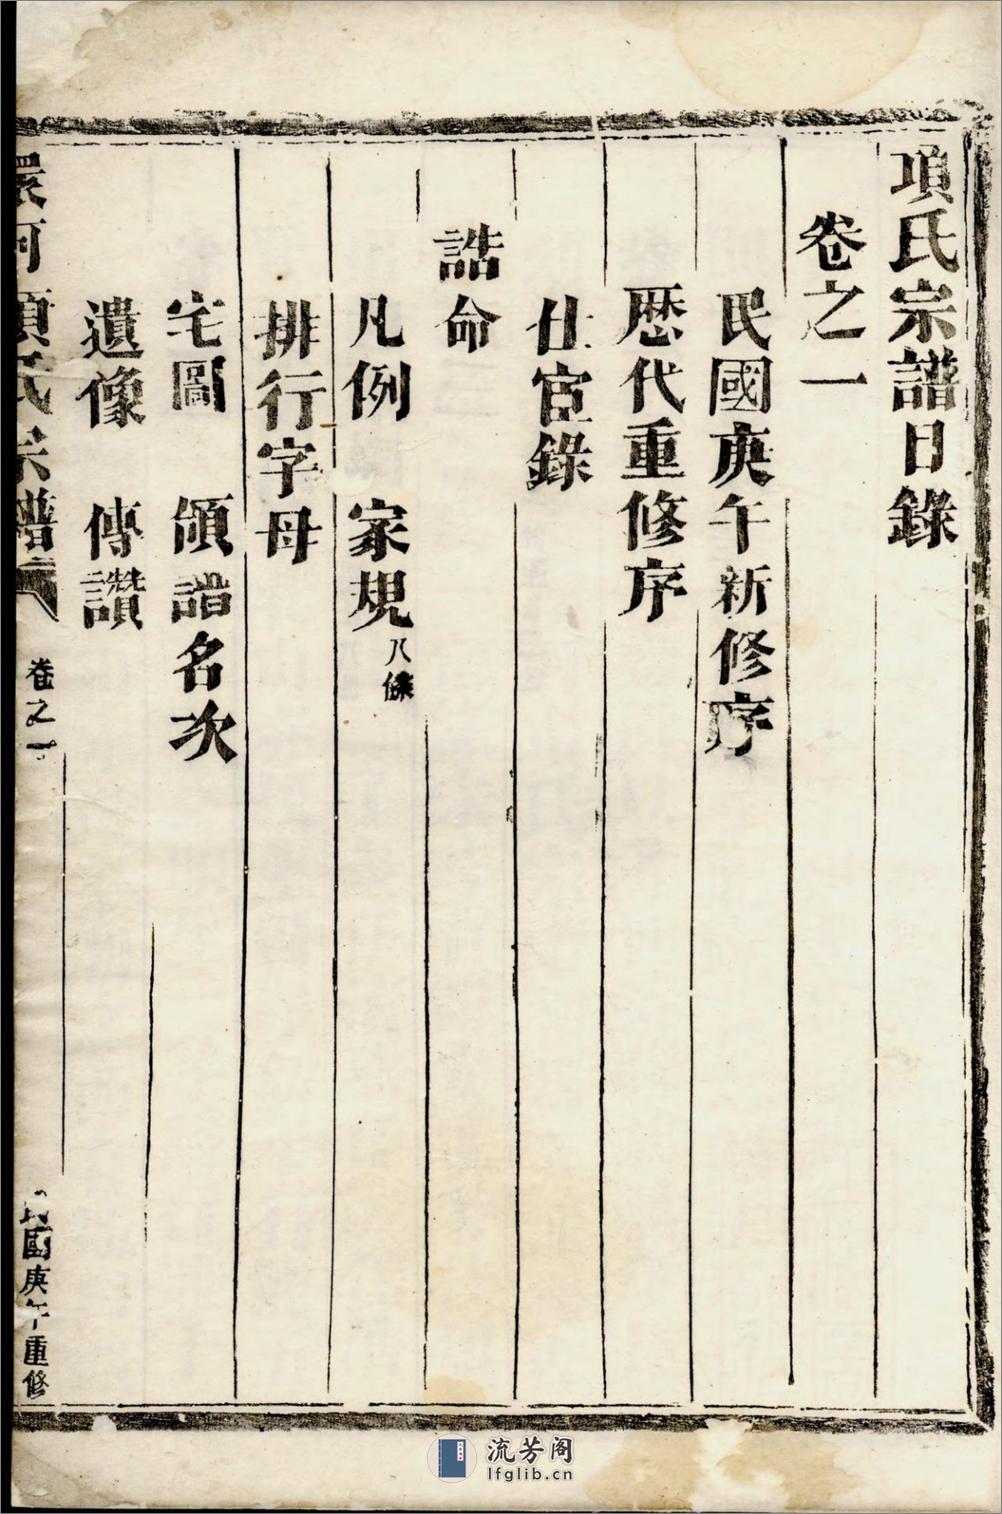 項氏宗譜目錄
卷之一
民國庚午新修序
歷代重修序
仕宦錄
誥命
凡例 家規 八條
排行字母
宅圖 領譜名次
遺像 傳讚
環河項氏宗譜 卷之一 民國庚午重修
流芳阁
lfglib.cn